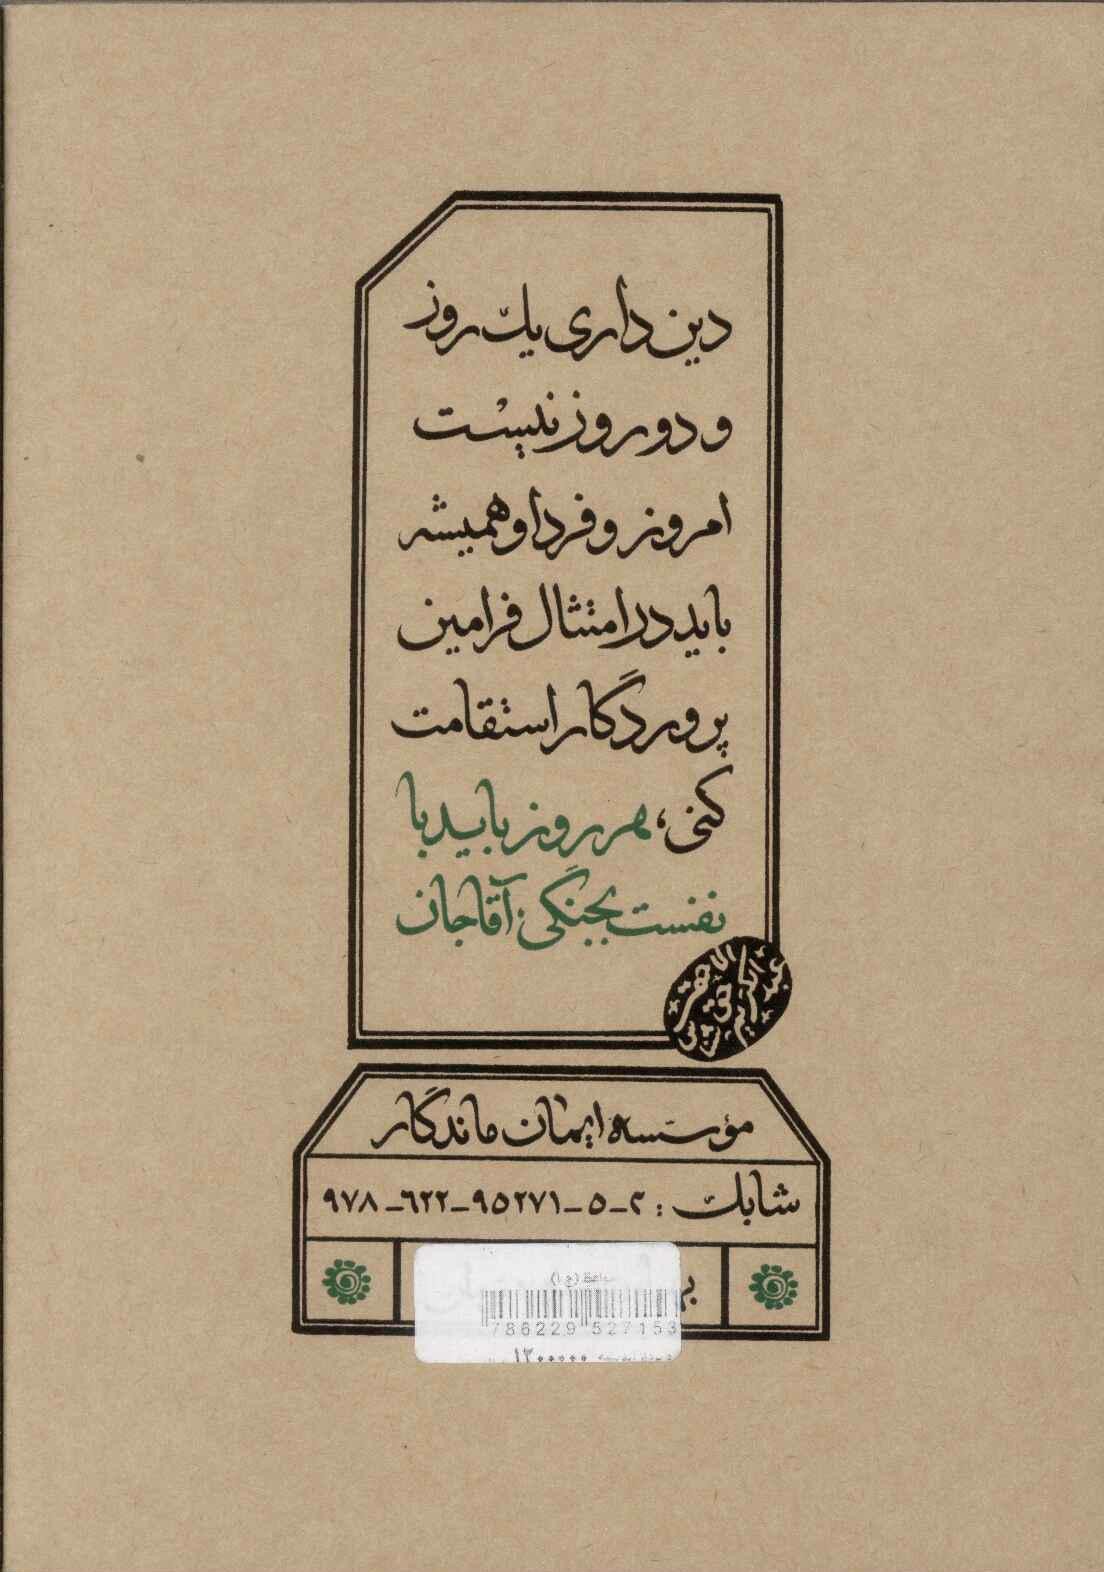 دین داری یك روز
و دو روز نیست
امروز و فردا و همیشه
باید در امتثال فرامین
پروردگار استقامت
کنی، هر روز باید با
نفست بجنگی. آقا جان
عبدالکریم
حق شناس
الاحقر
مؤسسه ایمان ماندگار
شابك : ۲-۵-۹۵۲۷۱-۶۲۲-۹۷۸
786229 527153
۱۲۰۰۰۰۰